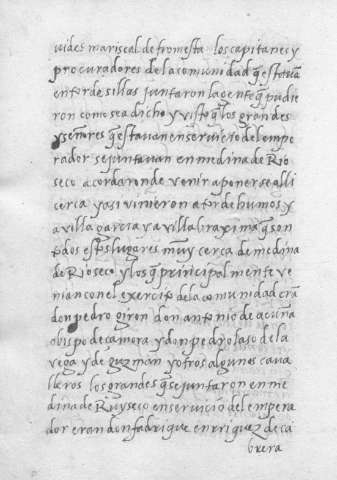 uides mariscal de fromesta los capitanes y
procuradores de la comunidad q̃ estauã
en tordesillas juntaron la gente q̃ pudie
ron como sea dicho y visto q̃ los grandes
y señores q̃ estauan en servicio del empe
rador se juntauan en medina de Rio
seco acordaron de venir a ponerse alli
cerca y asi vinieron a tordehumos y
a villa garcia y a villabraxima q̃ son
todos estos lugares muy cerca de medina
de Rioseco y los q̃ principalmente ve
nian con el exercito de la comunidad erã
don pedro giron don antonio de acuña
obispo de çamora y don pedro laso de la
vega y de guzman y otros algunos caua
lleros los grandes q̃ se juntaron en me
dina de Ruyseco en servicio del empera
dor eran don fadrique enrriquez de ca
brera